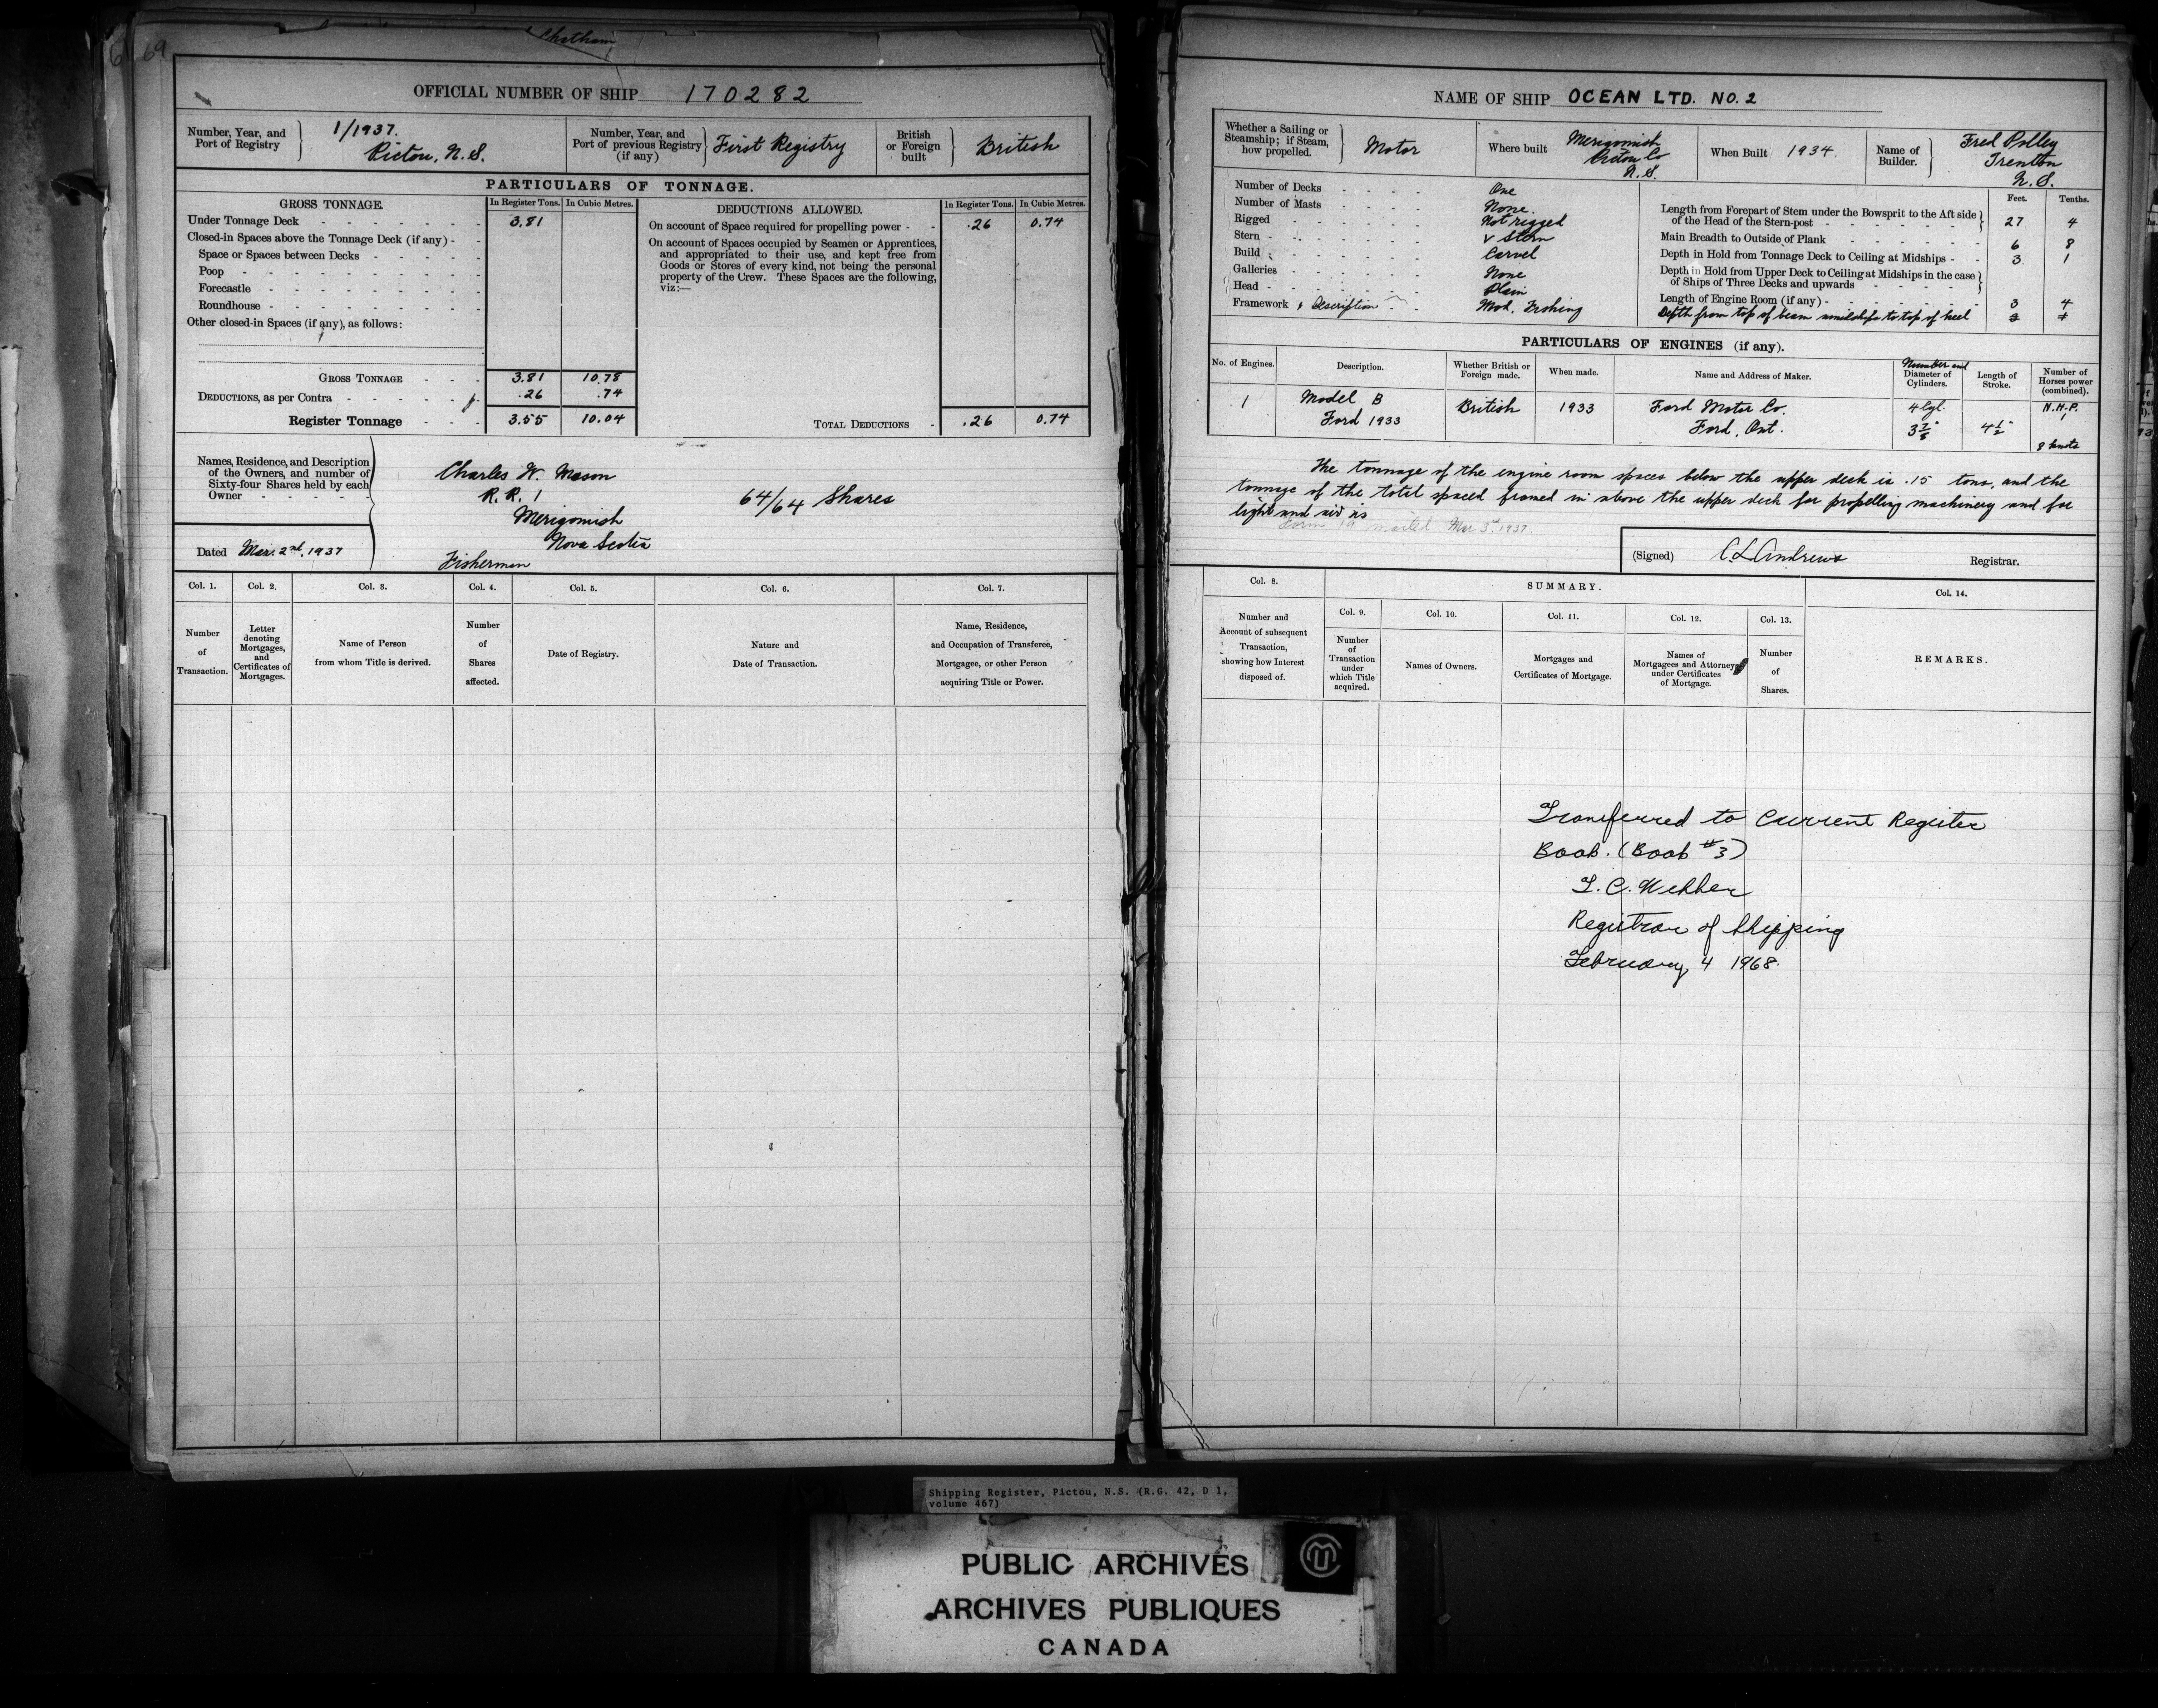 69
Chatham
OFFICIAL NUMBER OF SHIP 170282
Number, Year, and Port of Registry
1/1937.
Pictou, N.S.
Number, Year, and Port of previous Registry (if any)
First Registry
British or Foreign built
British
PARTICULARS OF TONNAGE.
GROSS TONNAGE.
In Register Tons.
In Cubic Metres.
DEDUCTIONS ALLOWED.
In Register Tons.
In Cubic Metres.
Under Tonnage Deck 3.81
Closed-in Spaces above the Tonnage Deck (if any)
Space or Spaces between Decks
Poop
Forecastle
Roundhouse
Other closed-in Spaces (if any), as follows:
GROSS TONNAGE 3.81 10.78
DEDUCTIONS, as per Contra .26 .74
Register Tonnage 3.55 10.04
On account of Space required for propelling power .26 0.74
On account of Spaces occupied by Seamen or Apprentices,
and appropriated to their use, and kept free from
Goods or Stores of every kind, not being the personal
property of the Crew. These Spaces are the following,
viz:—
TOTAL DEDUCTIONS .26 0.74
Names, Residence, and Description
of the Owners, and number of
Sixty-four Shares held by each
Owner
Charles W. Mason
R.R. 1
Merigomish
Nova Scotia
Fisherman
64/64 Shares
Dated Mar. 2nd, 1937
Col. 1.
Col. 2.
Col. 3.
Col. 4.
Col. 5.
Col. 6.
Col. 7.
Number of Transaction.
Letter denoting Mortgages, and Certificates of Mortgages.
Name of Person from whom Title is derived.
Number of Shares affected.
Date of Registry.
Nature and Date of Transaction.
Name, Residence, and Occupation of Transferee, Mortgagee, or other Person acquiring Title or Power.
NAME OF SHIP OCEAN LTD. NO. 2
Whether a Sailing or Steamship; if Steam, how propelled.
Motor
Where built
Merigomish
Pictou Co
N.S.
When Built 1934.
Name of Builder.
Fred Polley
Trenton
N.S.
Number of Decks One
Number of Masts None.
Rigged Not rigged
Stern V Stern
Build Carvel
Galleries None
Head Plain
Framework & Description Wood, Fishing
Feet. Tenths.
Length from Forepart of Stem under the Bowsprit to the Aft side
of the Head of the Stern-post 27 4
Main Breadth to Outside of Plank 6 8
Depth in Hold from Tonnage Deck to Ceiling at Midships 3 1
Depth in Hold from Upper Deck to Ceiling at Midships in the case
of Ships of Three Decks and upwards
Length of Engine Room (if any) 3 4
Depth from top of beam amidships to top of keel
PARTICULARS OF ENGINES (if any).
No. of Engines.
Description.
Whether British or Foreign made.
When made.
Name and Address of Maker.
Number and Diameter of Cylinders.
Length of Stroke.
Number of Horses power (combined).
1
Model B
Ford 1933
British
1933
Ford Motor Co.
Ford, Ont.
4 Cyl.
3 7/8"
4 1/2"
N.H.P.
8 knots
The tonnage of the engine room spaces below the upper deck is .15 tons, and the
tonnage of the total spaced framed in above the upper deck for propelling machinery and for
light and air is
Form 19 mailed Mar 3rd 1937.
(Signed) C L Andrews Registrar.
Col. 8.
SUMMARY.
Col. 9.
Col. 10.
Col. 11.
Col. 12.
Col. 13.
Col. 14.
Number and Account of subsequent Transaction, showing how Interest disposed of.
Number of Transaction under which Title acquired.
Names of Owners.
Mortgages and Certificates of Mortgage.
Names of Mortgagees and Attorneys under Certificates of Mortgage.
Number of Shares.
REMARKS.
Transferred to Current Register
Book. (Book #3)
Registrar of Shipping
February 4 1968.
Shipping Register, Pictou, N.S. (R.G. 42, D 1,
volume 467)
PUBLIC ARCHIVES
ARCHIVES PUBLIQUES
CANADA